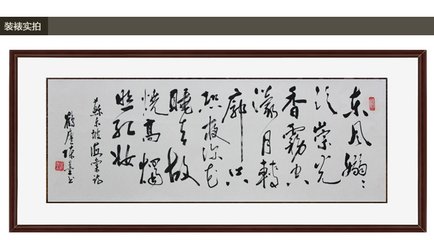 装裱实拍
东风嫋嫋
泛崇光
香雾空
濛月转
廊只
恐夜深花
睡去故
烧高烛
照红妆
苏东坡海棠诗